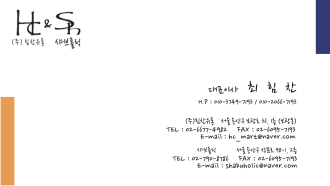 Hc & Sh
(주)힘찬유통 샤브홀릭
대표이사 최 힘 찬
H.P : 010-3749-7193 / 010-2066-7193
(주)힘찬유통
TEL : 02-6677-4982 FAX : 02-6098-7193
E-mail : hc_mart@naver.com
샤브홀릭
TEL : 02-790-8786 FAX : 02-6098-7193
E-mail : shabuholic@naver.com